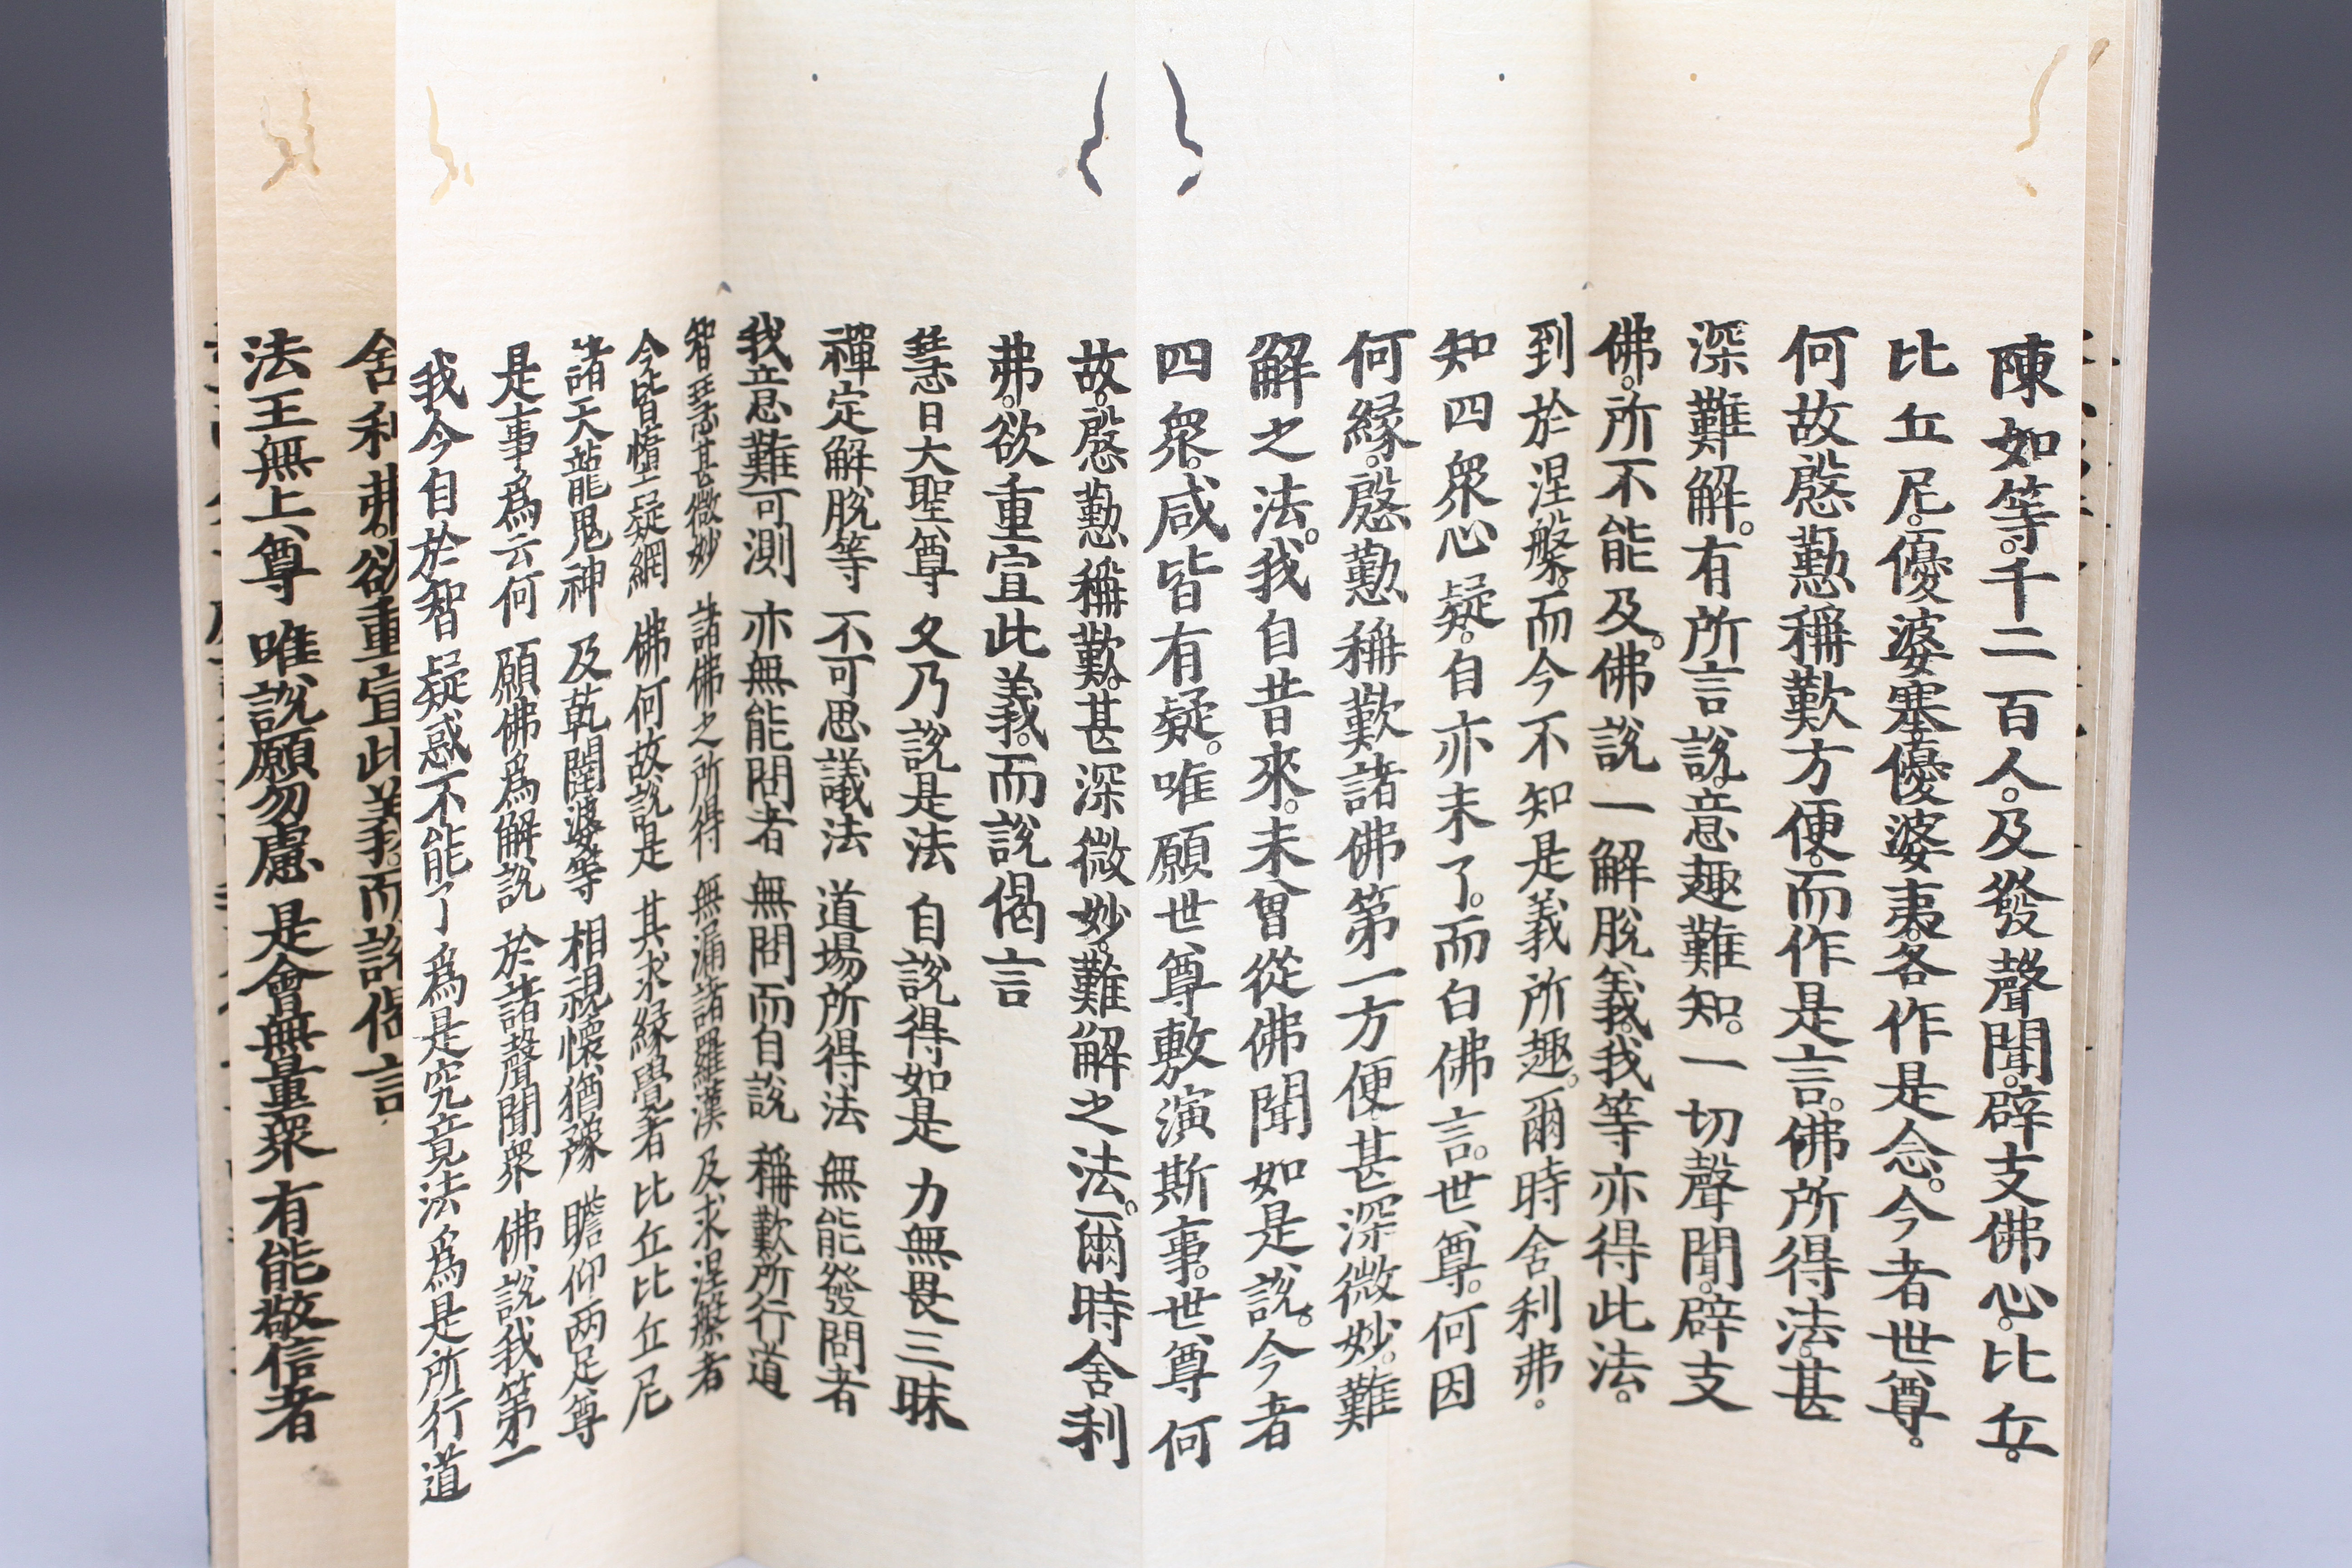 陳如等。千二百人。及發聲聞。辟支佛心。比丘。
比丘尼。優婆塞優婆夷。各作是念。今者世尊。
何故慇懃稱歎方便。而作是言。佛所得法。甚
深難解。有所言說。意趣難知。一切聲聞。辟支
佛。所不能及。佛說一解脫義。我等亦得此法。
到於涅槃。而今不知是義所趣。爾時舍利弗。
知四衆心疑。自亦未了。而白佛言。世尊。何因
何緣。慇懃稱歎諸佛第一方便甚深微妙。難
解之法。我自昔來。未曾從佛聞如是說。今者
四衆。咸皆有疑。唯願世尊敷演斯事。世尊何
故。慇懃稱歎。甚深微妙。難解之法。爾時舍利
弗。欲重宣此義。而說偈言
慧日大聖尊 久乃說是法 自說得如是 力無畏三昧
禪定解脫等 不可思議法 道場所得法 無能發問者
我意難可測 亦無能問者 無問而自說 稱歎所行道
智慧甚微妙 諸佛之所得 無漏諸羅漢 及求涅槃者
今皆墮疑網 佛何故說是 其求緣覺者 比丘比丘尼
諸天龍鬼神 及乾闥婆等 相視懷猶豫 瞻仰两足尊
是事爲云何 願佛爲解說 於諸聲聞衆 佛說我第一
我今自於智 疑惑不能了 爲是究竟法 爲是所行道
舍利弗。欲重宣此義。而說偈言
法王無上尊 唯說願勿慮 是會無量衆 有能敬信者